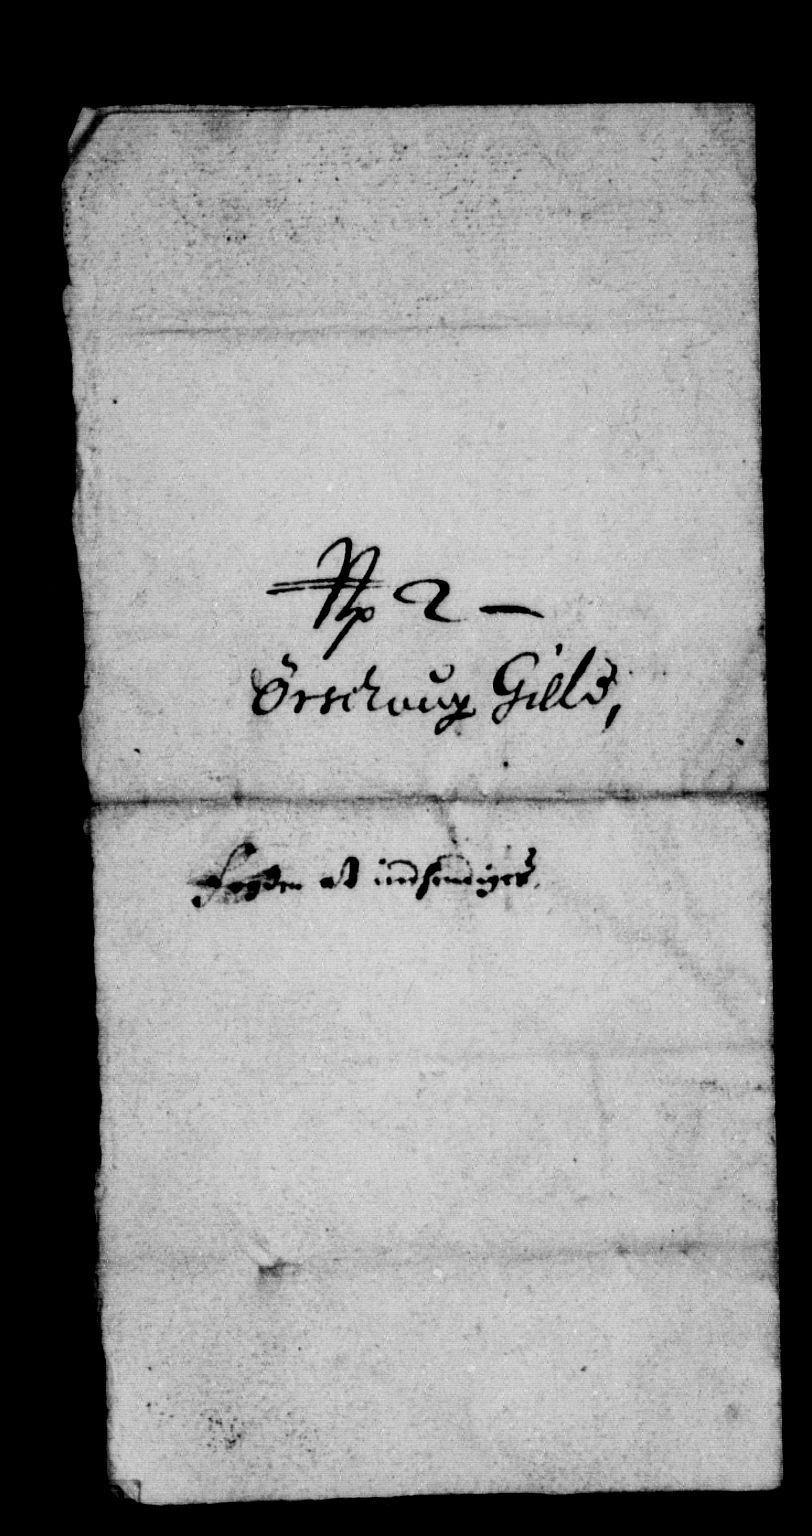 Np 2 —
Örschoug Gield,
Fogden at indhendiges.